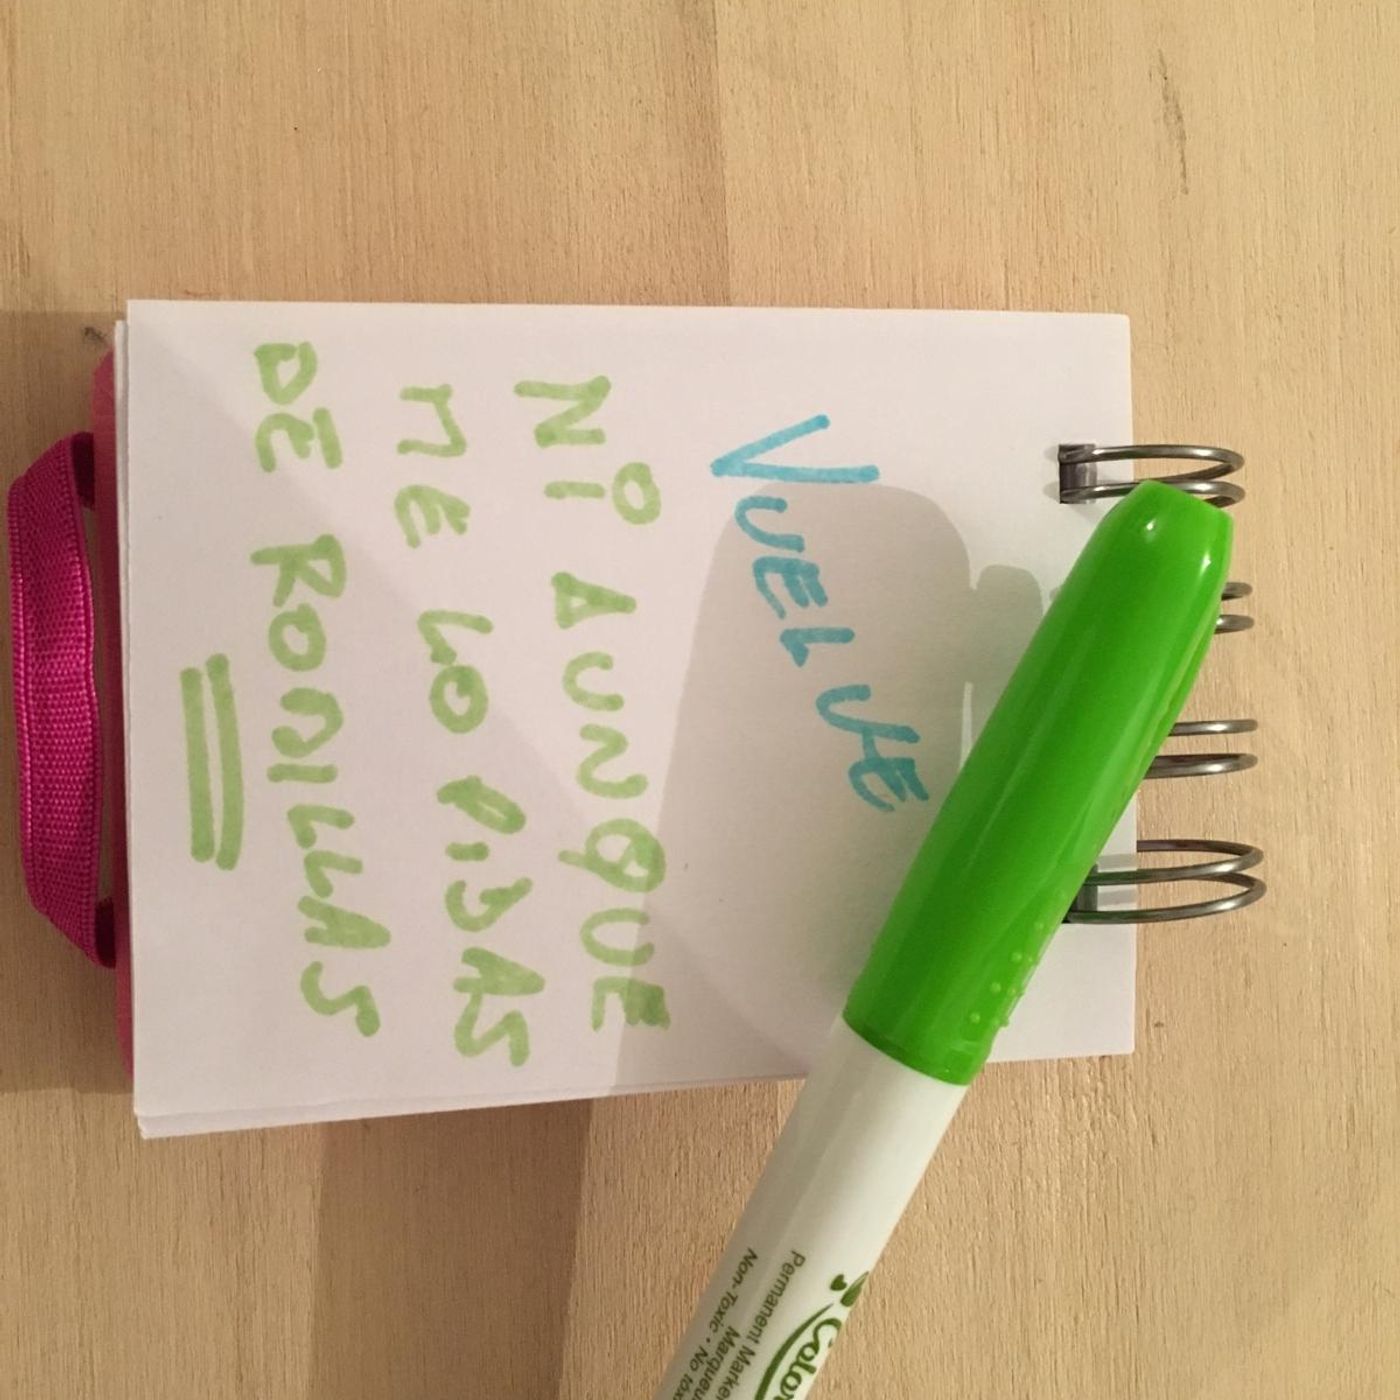 VUELVE
Ni AUNQUE
ME LO PIDAS
DE RODILLAS
Permanent Marker
Non-Toxic • No